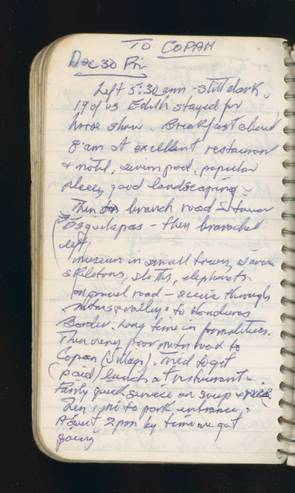 TO COPAN
Dec 30 Fri
Left 5:30 am - still dark.
19 of us Edith stayed for
horse show. Breakfast about
8 am at excellent restaurant
& motel, swim pool, popular
place, good landscaping.
Then branch road toward
Esquipulas - then branched
left,
museum in small town,
skeletons, sloths, elephants
road - scenic through
mtns & valleys to Honduras
Border. Long time in formalities.
Then very poor mtn road to
Copan (village). Tried to get
(paid) lunch at restaurant -
fairly quick service on soup &
Then 1 mi to park entrance.
About 2 pm by time we got
going